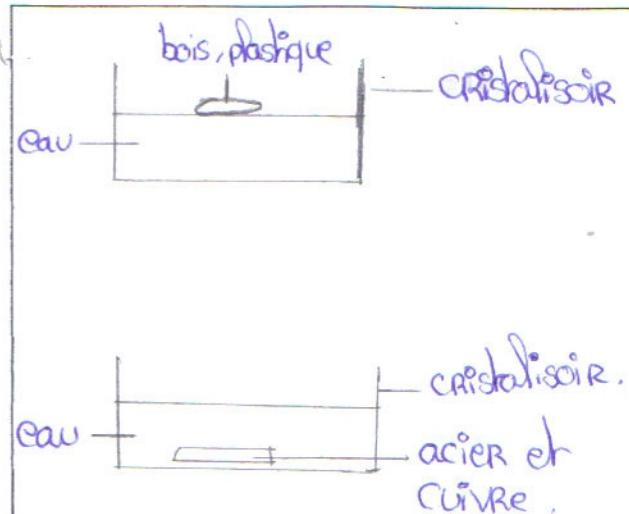 bois, plastique
cristalisoir
eau
cristalisoir.
eau
acier et
cuivre.